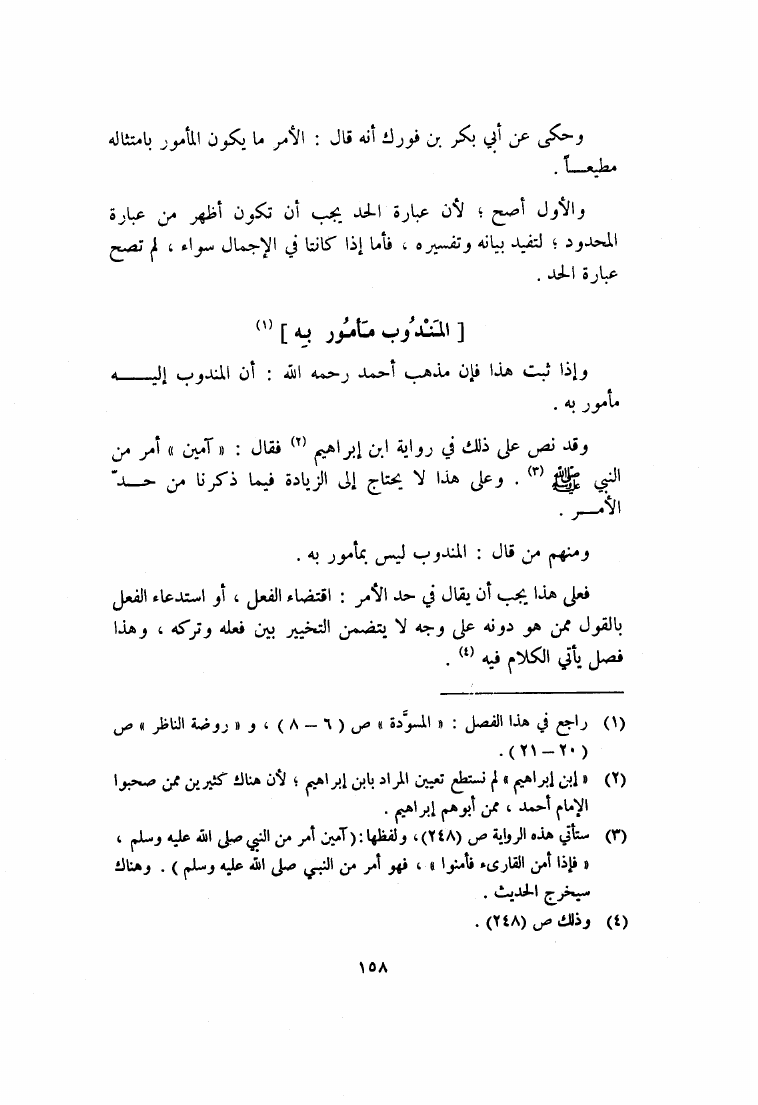 وحكى عن أبي بكر بن فورك أنه قال : الأمر ما يكون المأمور بامتثاله
مطيعــاً .
والأول أصح ؛ لأن عبارة الحد يجب أن تكون أظهر من عبارة
المحدود ؛ لتفيد بيانه وتفسيره ، فأما إذا كانتا في الإجمال سواء ، لم تصح
عبارة الحد .
[ المَنْدُوب مَأمُور بِه ] (١)
وإذا ثبت هذا فإن مذهب أحمد رحمه الله : أن المندوب إليــــه
مأمور به .
وقد نص على ذلك في رواية ابن إبراهيم (٢) فقال : « آمين » أمر من
النبي ﷺ (٣) . وعلى هذا لا يحتاج إلى الزيادة فيما ذكرنا من حــدّ
الأمــر .
ومنهم من قال : المندوب ليس بمأمور به .
فعلى هذا يجب أن يقال في حد الأمر : اقتضاء الفعل ، أو استدعاء الفعل
بالقول ممن هو دونه على وجه لا يتضمن التخيير بين فعله وتركه ، وهذا
فصل يأتي الكلام فيه (٤) .
(١) راجع في هذا الفصل : « المسوَّدة » ص ( ٦ – ٨ ) ، و « روضة الناظر » ص
( ٢٠ – ٢١ ) .
(٢) « إبن إبراهيم » لم نستطع تعيين المراد بابن إبراهيم ؛ لأن هناك كثيرين ممن صحبوا
الإمام أحمد ، ممن أبوهم إبراهيم .
(٣) ستأتي هذه الرواية ص (٢٤٨) ، ولفظها : ( آمين أمر من النبي صلى الله عليه وسلم ،
« فإذا أمن القارىء فأمنوا » ، فهو أمر من النبـي صلى الله عليه وسلم ) . وهناك
سيخرج الحديث .
(٤) وذلك ص (٢٤٨) .
١٥٨